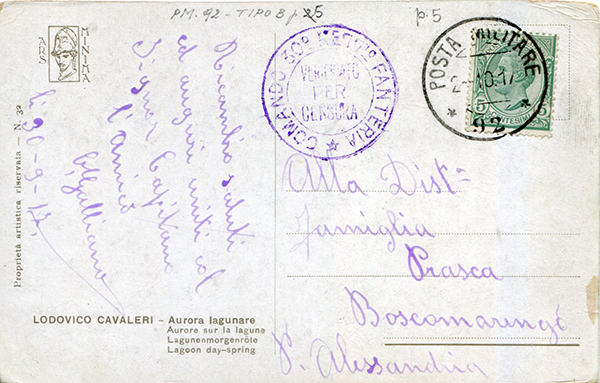 PM. 92 - TIPO B p. 5
p. 5
ARS MINIMA
COMANDO 30° REGG. FANTERIA
VERIFICATO
PER
CENSURA
POSTA MILITARE
2 10.17
92
5 5
Ricambio saluti
ed auguri uniti col
Signor Capitano
l'amico
Galliano
li 30-9-17.
Proprietà artistica riservata — N. 32
Alla Dist.na
famiglia
Prasca
Boscomarengo
P. Alessandria
LODOVICO CAVALERI – Aurora lagunare
Aurore sur la lagune
Lagunenmorgenröte
Lagoon day-spring